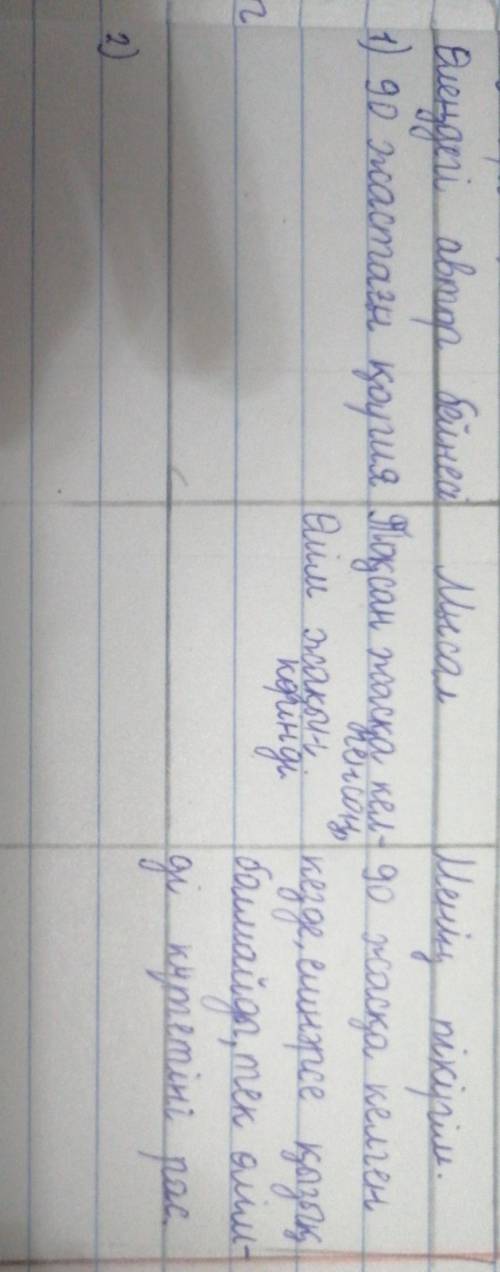 Өлеңдегі автор бейнесі Мысал Менің пікірім.
1) 90 жастағы қария Тоқсан жасқа кел- 90 жасқа келген
генсоң,
Өлім жақын кезде, ешнәрсе қызық
көрінді.
болмайды, тек өлім-
ді күтетіні рас.
2)